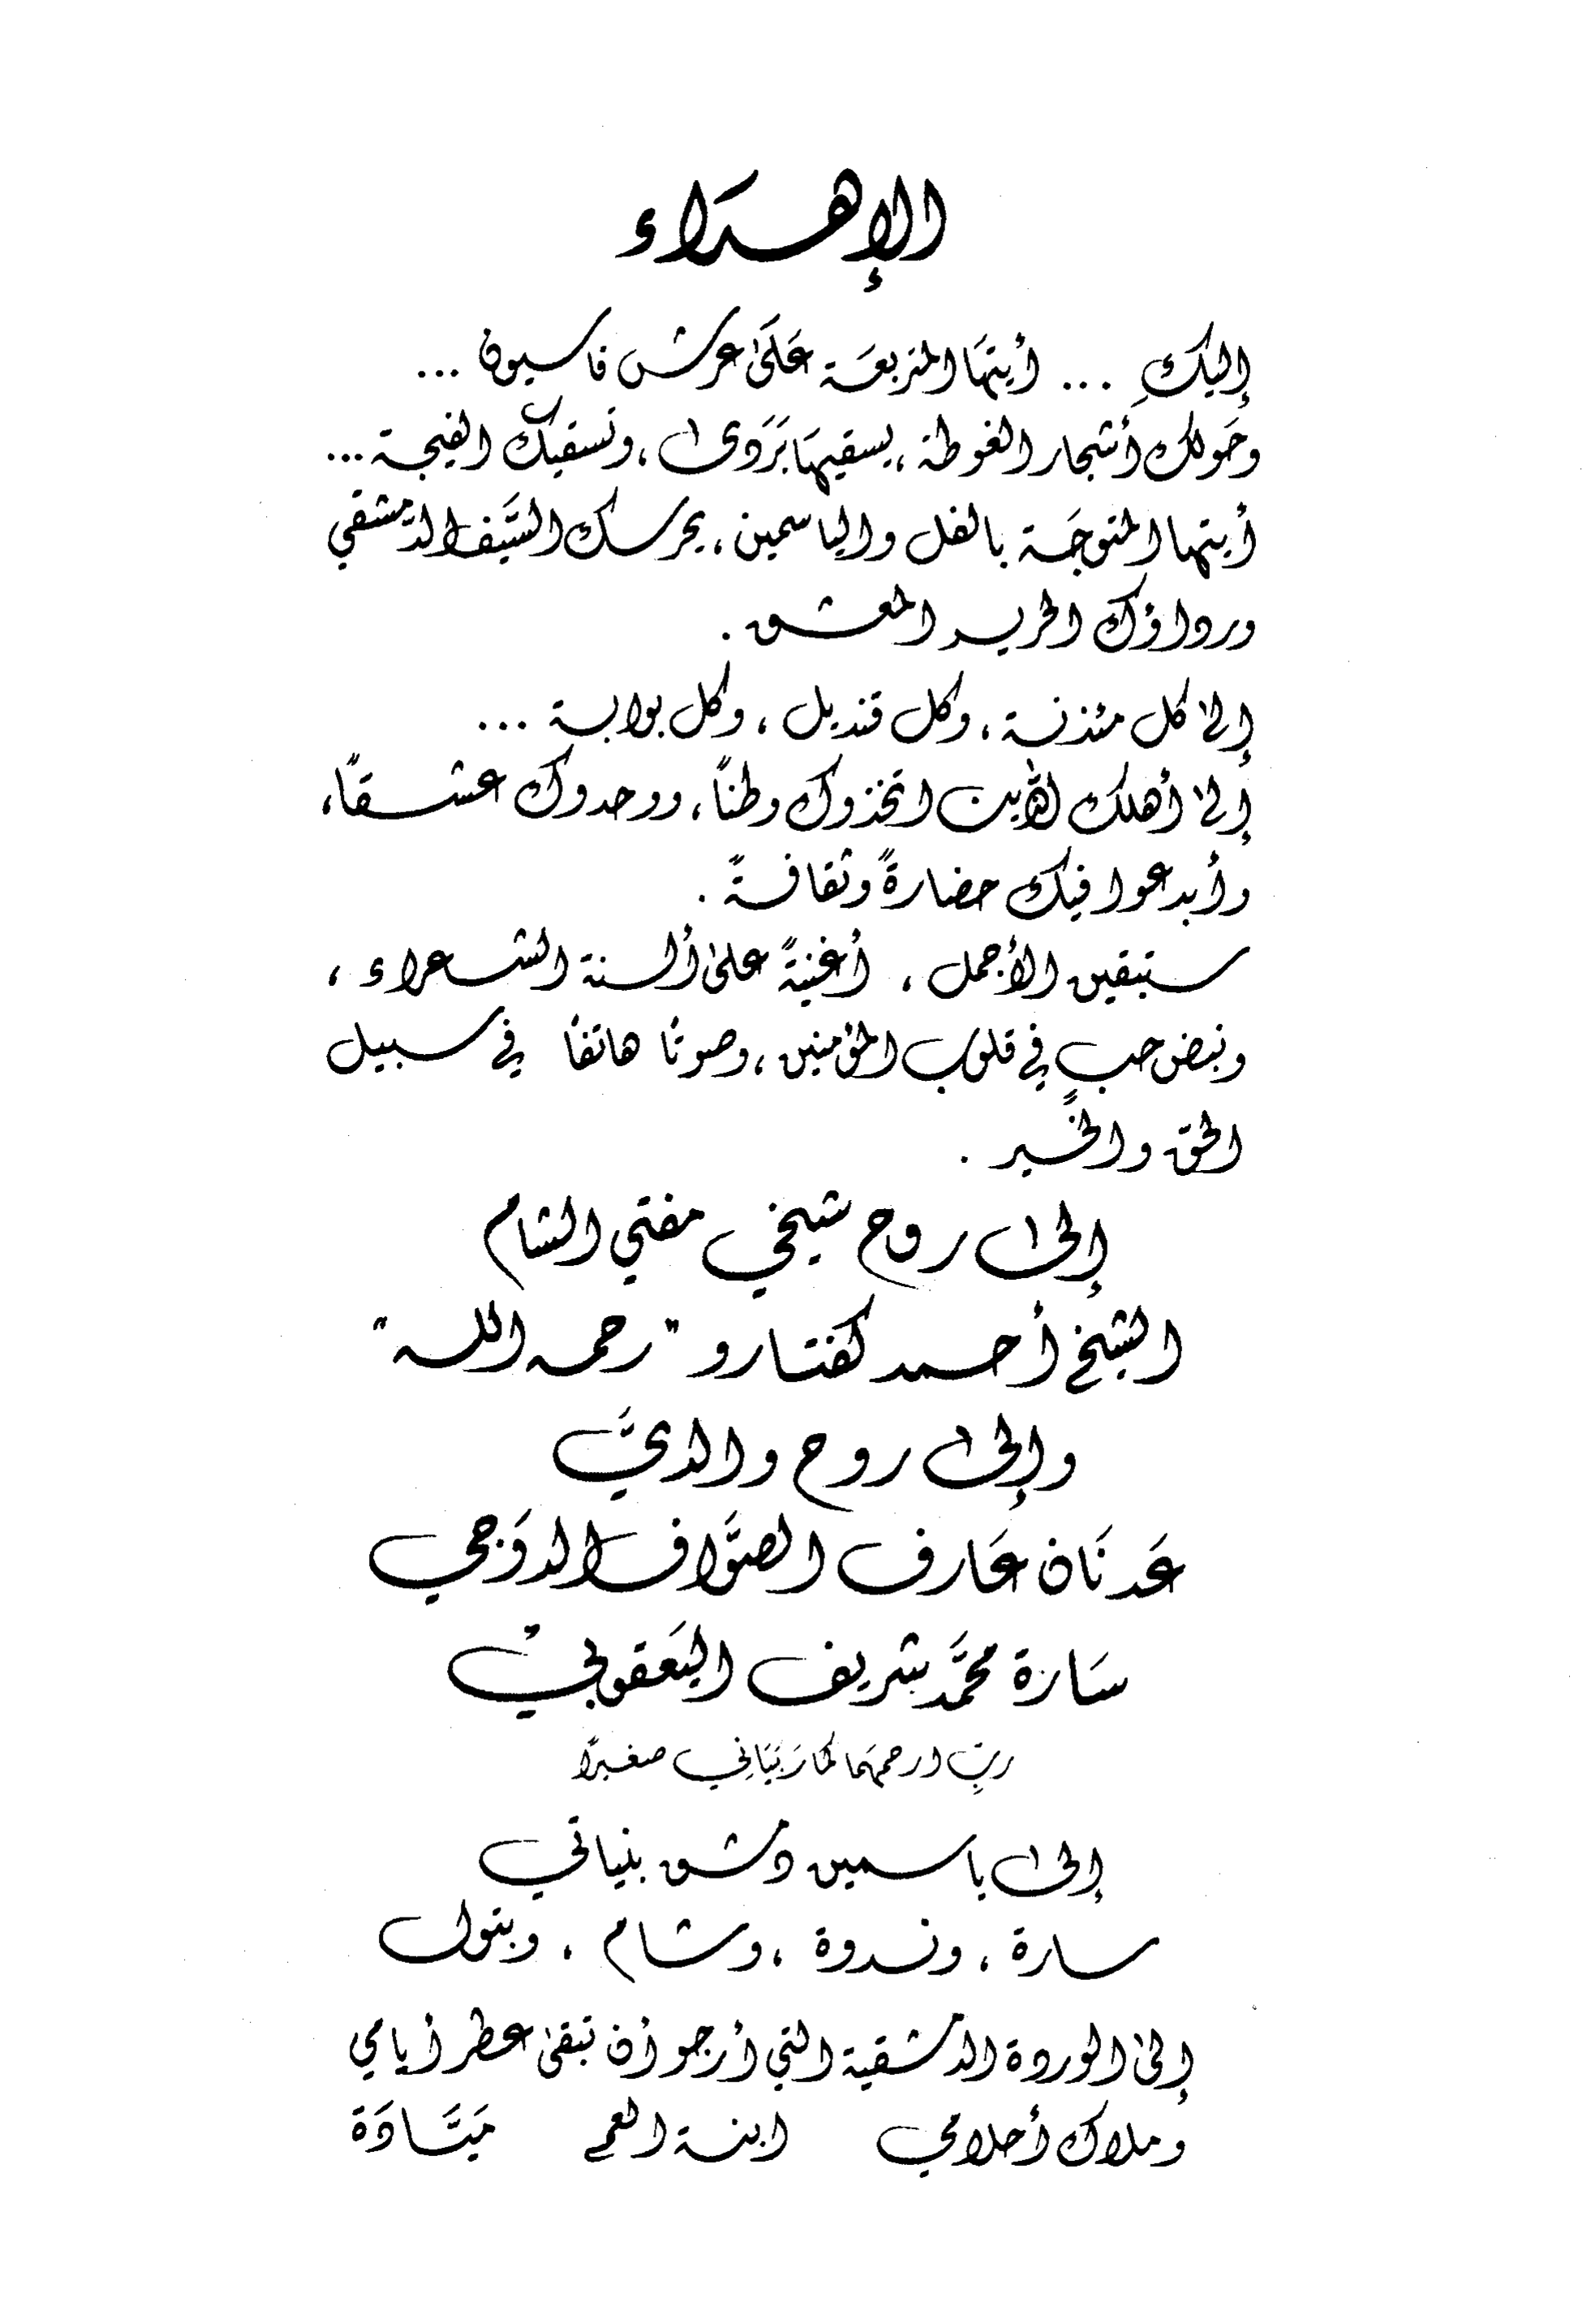 الإهداء
إليكِ ... أيتهَا المتربعَة عَلَىٰ عرش قاسيون ...
وحَولك أشجار الغوطة، يسقيهَا بَرَدى، وتسقيك الفيجة ...
أيتها المتوجَة بالفل والياسمين، يحرسك السَّيف الدمشقي
ورداؤك الحرير المعشق.
إلى كل مئذنة، وكل قنديل، وكل بوابة ...
إلى أهلك الذين اتخذوك وطنًا، ووحدوك عشقًا،
وأبدعوا فيك حضارةً وثقافةً.
ستبقين الأجمل، أغنيةً على ألسنة الشعراء،
ونبض حبٍ في قلوب المؤمنين، وصوتًا هاتفًا في سبيل
الحق والخير.
إلى روح شيخي مفتي الشام
الشيخ أحمد كفتارو "رحمه الله"
وإلى روح والديَّ
عَدنَان عَارف الصوَّاف الدوَجي
سَارة محمَّد شريف اليَعقوبي
ربِّ ارحمهَما كمَا رَبَيَاني صغيرًا
إلى ياسمين دمشق بنياتي
سارة، وندوة، وشام، وبتول
إلى الوردة الدمشقية التي أرجو أن تبقى عطر أيامي
وملاك أحلامي ابنة العم ميَّادَة